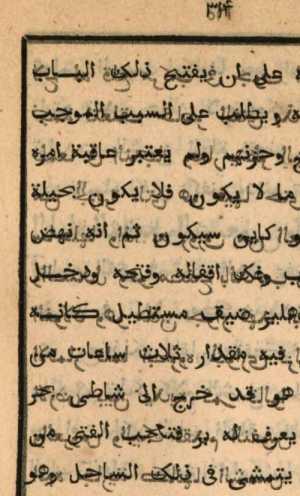 ٣١٤
على ان يفتح ذلك الباب
ويطلب على السبب الموجب
وحزنهم ولم يعتبر عاقبة امره
ما لا يكون فلا يكون بحيلة
كاين سيكون ثم انه نهض
وفك اقفاله وفتحه ودخل
ضيق مستطيل كانه
فيه مقدار ثلاث ساعات من
هو قد خرج الى شاطى بحر
يعرفه فتعجب الفتى من
يتمشى فى ذلك الساحل وهو